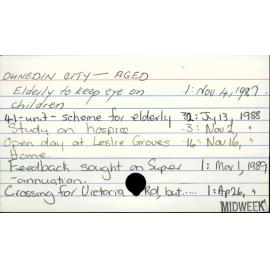 DUNEDIN CITY — AGED
Elderly to keep eye on 1: Nov 4, 1987
children
41-unit-scheme for elderly 32: Jy 13, 1988
Study on hospice -3: Nov 2, "
Open day at Leslie Groves 14: Nov 16, "
Home.
Feedback sought on Super 1: Mar 1, 1989
-annuation.
Crossing for Victoria Rd, but..... 1: Ap 26, "
MIDWEEK